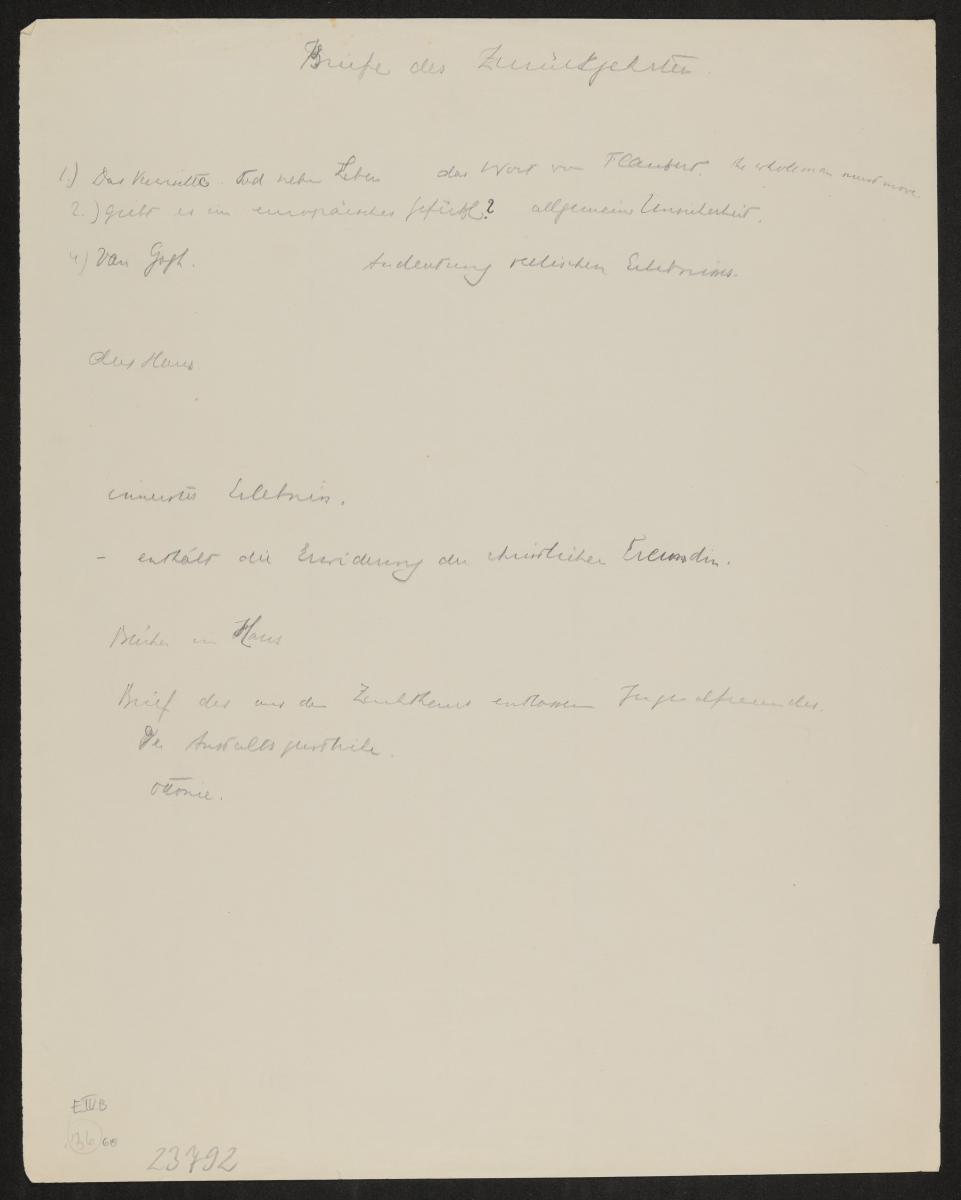 Briefe des Zurückgekehrten
1.) Das Vermittte. Tod neben Leben das Wort von Flaubert. the whole man must move.
2.) giebt es ein europäisches Gefühl? allgemeine Unsicherheit.
4) Van Gogh. Andeutung seelischen Erlebnisses.
das Haus
innerstes Erlebnis.
– enthält die Erwiderung der christlichen Freundin.
Bücher im Haus
Brief des aus dem Zuchthaus entlassenen Jugendfreundes.
Der Anstaltsgeistliche.
Ottonie.
E III B
36 68
23792